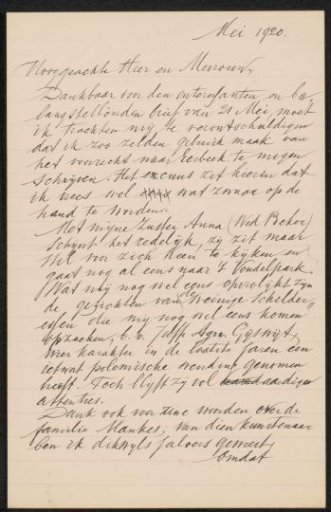 Mei 1920.
Hooggeachte Heer en Mevrouw,
Dankbaar voor den interessanten en be-
langstellenden brief van 21 Mei, moet
ik trachten mij te verontschuldigen
dat ik zoo zelden gebruik maak van
het voorrecht naar Eerbeek te mogen
schrijven. Het excuus zit hierin dat
ik vrees wel wat zwaar op de
hand te worden.
Met mijne Zuster Anna (Wed Beker)
schijnt het redelijk, zij zit maar
stil voor zich heen te kijken en
gaat nog al eens naar 't Vondelpark.
Wat mij nog wel eens opvrolijkt zijn
de gezichten van weinige Schilder,
essen die mij nog wel eens komen
opzoeken, b.v. Jdffr Agn. Gijswijt,
wier karakter in de laatste jaren een
ietwat polemische wending genomen
heeft. Toch blijft zij vol aardige
attenties.
Dank ook voor Uwe woorden over de
familie Mankes; van dien kunstenaar
ben ik dikwijls jaloers geweest,
omdat